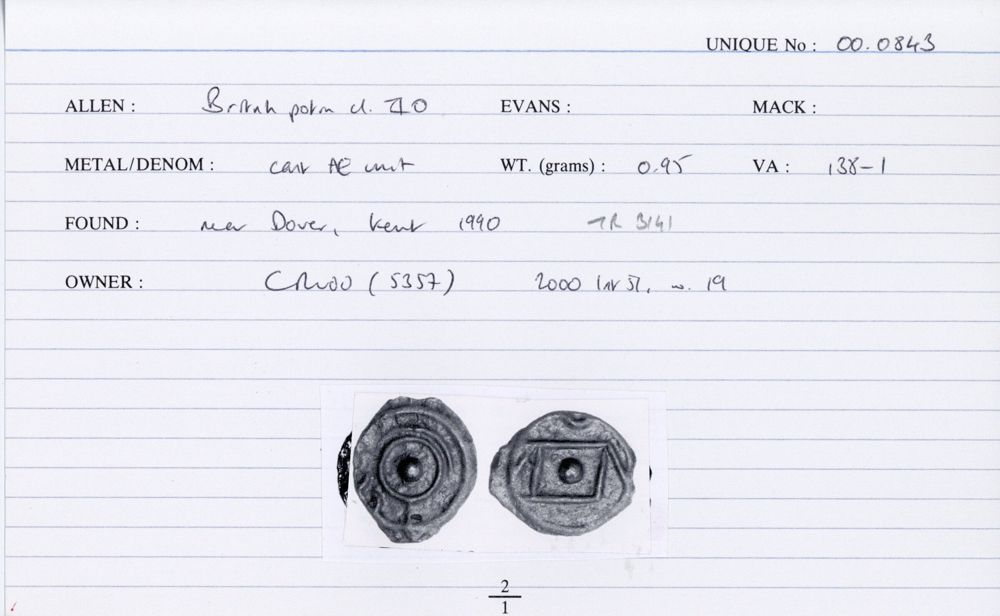 UNIQUE No : 00.0843
ALLEN : British potin cl. II O EVANS : MACK :
METAL/DENOM : cast AE unit WT. (grams) : 0.95 VA : 138-1
FOUND : near Dover, Kent 1990 TR 3141
OWNER : (5357) 2000 19
2
1